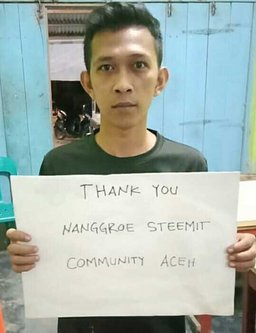 THANK YOU
NANGGROE STEEMIT
COMMUNITY ACEH